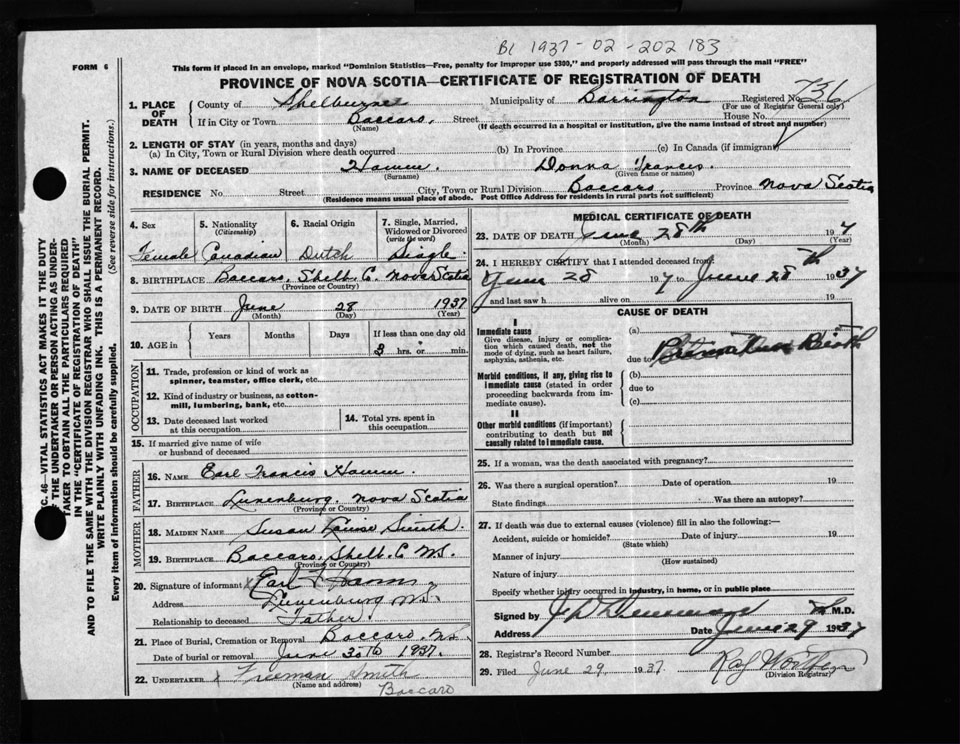 BC 1937-02-202183
FORM 6
This form if placed in an envelope, marked "Dominion Statistics—Free, penalty for improper use $300," and properly addressed will pass through the mail "FREE"
PROVINCE OF NOVA SCOTIA—CERTIFICATE OF REGISTRATION OF DEATH
1. PLACE OF DEATH
County of Shelburne Municipality of Barrington Registered No. 736
(For use of Registrar General only)
If in City or Town Baccaro, Street House No.
(Name) (If death occurred in a hospital or institution, give the name instead of street and number)
2. LENGTH OF STAY (in years, months and days)
(a) In City, Town or Rural Division where death occurred (b) In Province (c) In Canada (if immigrant)
3. NAME OF DECEASED Hamm Donna Francis.
(Surname) (Given name or names)
RESIDENCE No. Street City, Town or Rural Division Baccaro, Province Nova Scotia
(Residence means usual place of abode. Post Office Address for residents in rural parts not sufficient)
4. Sex 5. Nationality (Citizenship) 6. Racial Origin 7. Single, Married, Widowed or Divorced (write the word)
Female Canadian Dutch Single
8. BIRTHPLACE Baccaro, Shelb. C. Nova Scotia
(Province or Country)
9. DATE OF BIRTH June 28 1937
(Month) (Day) (Year)
10. AGE in Years Months Days If less than one day old
3 hrs. or min.
OCCUPATION
11. Trade, profession or kind of work as spinner, teamster, office clerk, etc.
12. Kind of industry or business, as cotton-mill, lumbering, bank, etc.
13. Date deceased last worked at this occupation
14. Total yrs. spent in this occupation
15. If married give name of wife or husband of deceased
FATHER
16. NAME Earl Francis Hamm.
17. BIRTHPLACE Lunenburg, Nova Scotia
(Province or Country)
MOTHER
18. MAIDEN NAME Susan Louise Smith.
19. BIRTHPLACE Baccaro, Shelb. C. N.S.
(Province or Country)
20. Signature of informant x Earl F Hamm
Address Lunenburg N.S.
Relationship to deceased Father.
21. Place of Burial, Cremation or Removal Baccaro, N.S.
Date of burial or removal June 30th 1937.
22. UNDERTAKER x Freeman Smith
(Name and address) Baccaro
MEDICAL CERTIFICATE OF DEATH
23. DATE OF DEATH June 28th 1937
(Month) (Day) (Year)
24. I HEREBY CERTIFY that I attended deceased from
June 28 1937 to June 28th 1937
and last saw h alive on 19
CAUSE OF DEATH
I
Immediate cause
Give disease, injury or complication which caused death, not the mode of dying, such as heart failure, asphyxia, asthenia, etc.
(a)
due to Birth
Morbid conditions, if any, giving rise to immediate cause (stated in order proceeding backwards from immediate cause).
(b)
due to
(c)
II
Other morbid conditions (if important) contributing to death but not causally related to immediate cause.
25. If a woman, was the death associated with pregnancy?
26. Was there a surgical operation? Date of operation 19
State findings Was there an autopsy?
27. If death was due to external causes (violence) fill in also the following:—
Accident, suicide or homicide? Date of injury 19
(State which)
Manner of injury
(How sustained)
Nature of injury
Specify whether injury occurred in industry, in home, or in public place
Signed by M.D.
Address Date June 29 1937
28. Registrar's Record Number
29. Filed June 29, 1937.
(Division Registrar)
C. 46—VITAL STATISTICS ACT MAKES IT THE DUTY
OF THE UNDERTAKER OR PERSON ACTING AS UNDER-
TAKER TO OBTAIN ALL THE PARTICULARS REQUIRED
IN THE "CERTIFICATE OF REGISTRATION OF DEATH"
AND TO FILE THE SAME WITH THE DIVISION REGISTRAR WHO SHALL ISSUE THE BURIAL PERMIT.
WRITE PLAINLY WITH UNFADING INK. THIS IS A PERMANENT RECORD.
Every item of information should be carefully supplied. (See reverse side for instructions.)